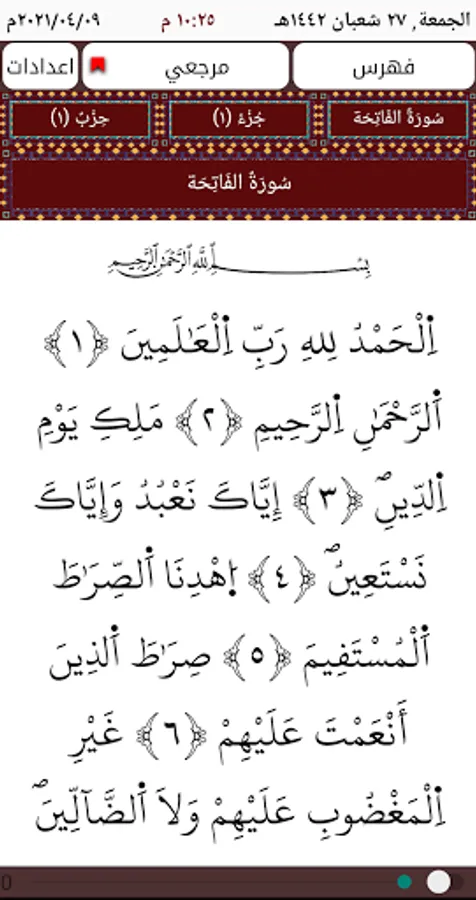 الجمعة, ٢٧ شعبان ١٤٤٢هـ ١٠:٢٥ م ٢٠٢١/٠٤/٠٩م
فهرس مرجعي اعدادات
سُورَةُ الفَاتِحَة جُزْءُ (١) حِزْبُ (١)
سُورَةُ الفَاتِحَة
بِسْمِ اللَّهِ الرَّحْمَٰنِ الرَّحِيمِ
اِ۬لْحَمْدُ لِلهِ رَبِّ اِ۬لْعَٰلَمِينَ ﴿١﴾
اَ۬لرَّحْمَٰنِ اِ۬لرَّحِيمِ ﴿٢﴾ مَلِكِ يَوْمِ
اِ۬لدِّينِۖ ﴿٣﴾ إِيَّاكَ نَعْبُدُ وَإِيَّاكَ
نَسْتَعِينُۖ ﴿٤﴾ اِ۪هْدِنَا اَ۬لصِّرَٰطَ
اَ۬لْمُسْتَفِيمَ ﴿٥﴾ صِرَٰطَ اَ۬لذِينَ
أَنْعَمْتَ عَلَيْهِمْ ﴿٦﴾ غَيْرِ
اِ۬لْمَغْضُوبِ عَلَيْهِمْ وَلَا اَ۬لضَّآلِّينَۖ
0